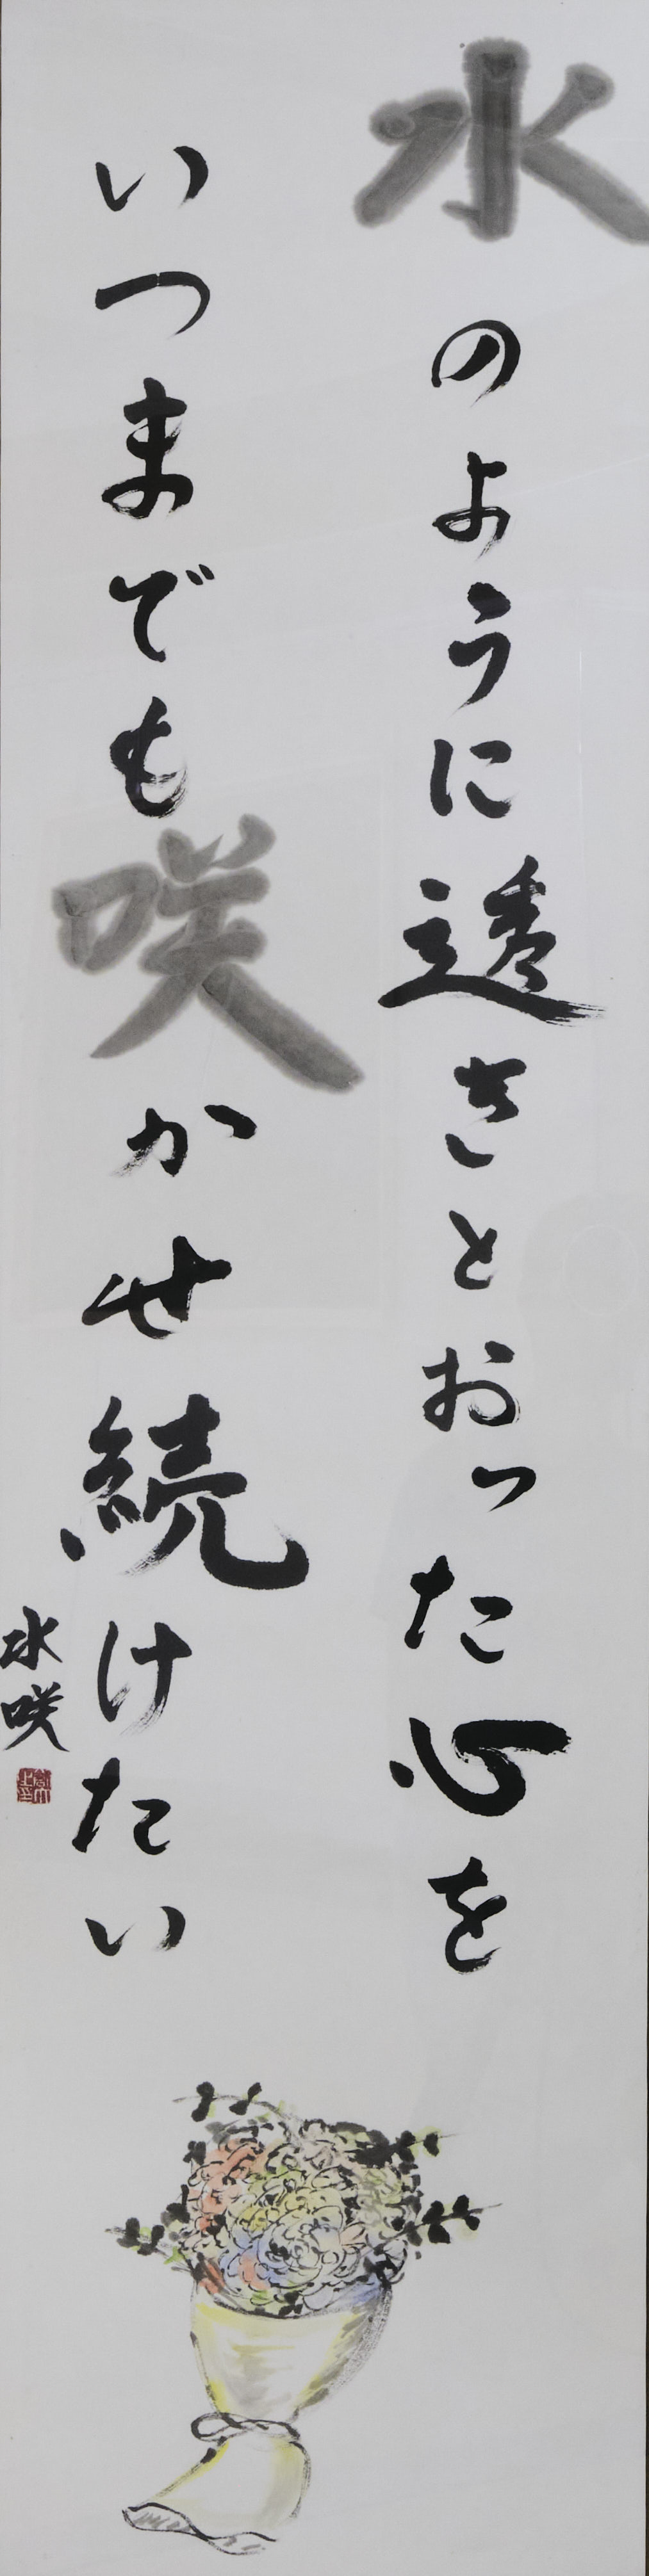 水のように透きとおった心を
いつまでも咲かせ続けたい
水咲